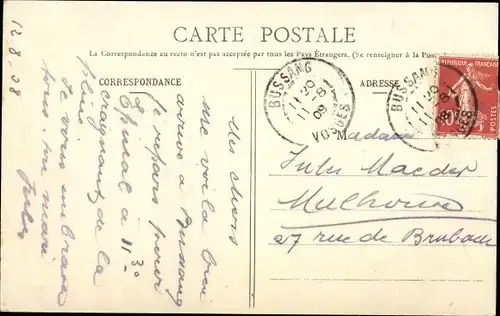 CARTE POSTALE
La Correspondance au recto n'est pas acceptée par tous les Pays Étrangers. (Se renseigner à la Pos
CORRESPONDANCE
ADRESSE
RÉPUBLIQUE FRANÇAISE
10
POSTES
BUSSANG
11 20
11 8
08
VOSGES
BUSSANG
11 20
11 8
08
VOSGES
12.8.08
Mes chers
Me voila bien
arrivé a Bussang
Je repars pour
Epinal à 11 30
craignant de la
pluie
Je vous embrasse
tous ton mari
Jules
Madame
Jules
Mulhouse
27 rue de